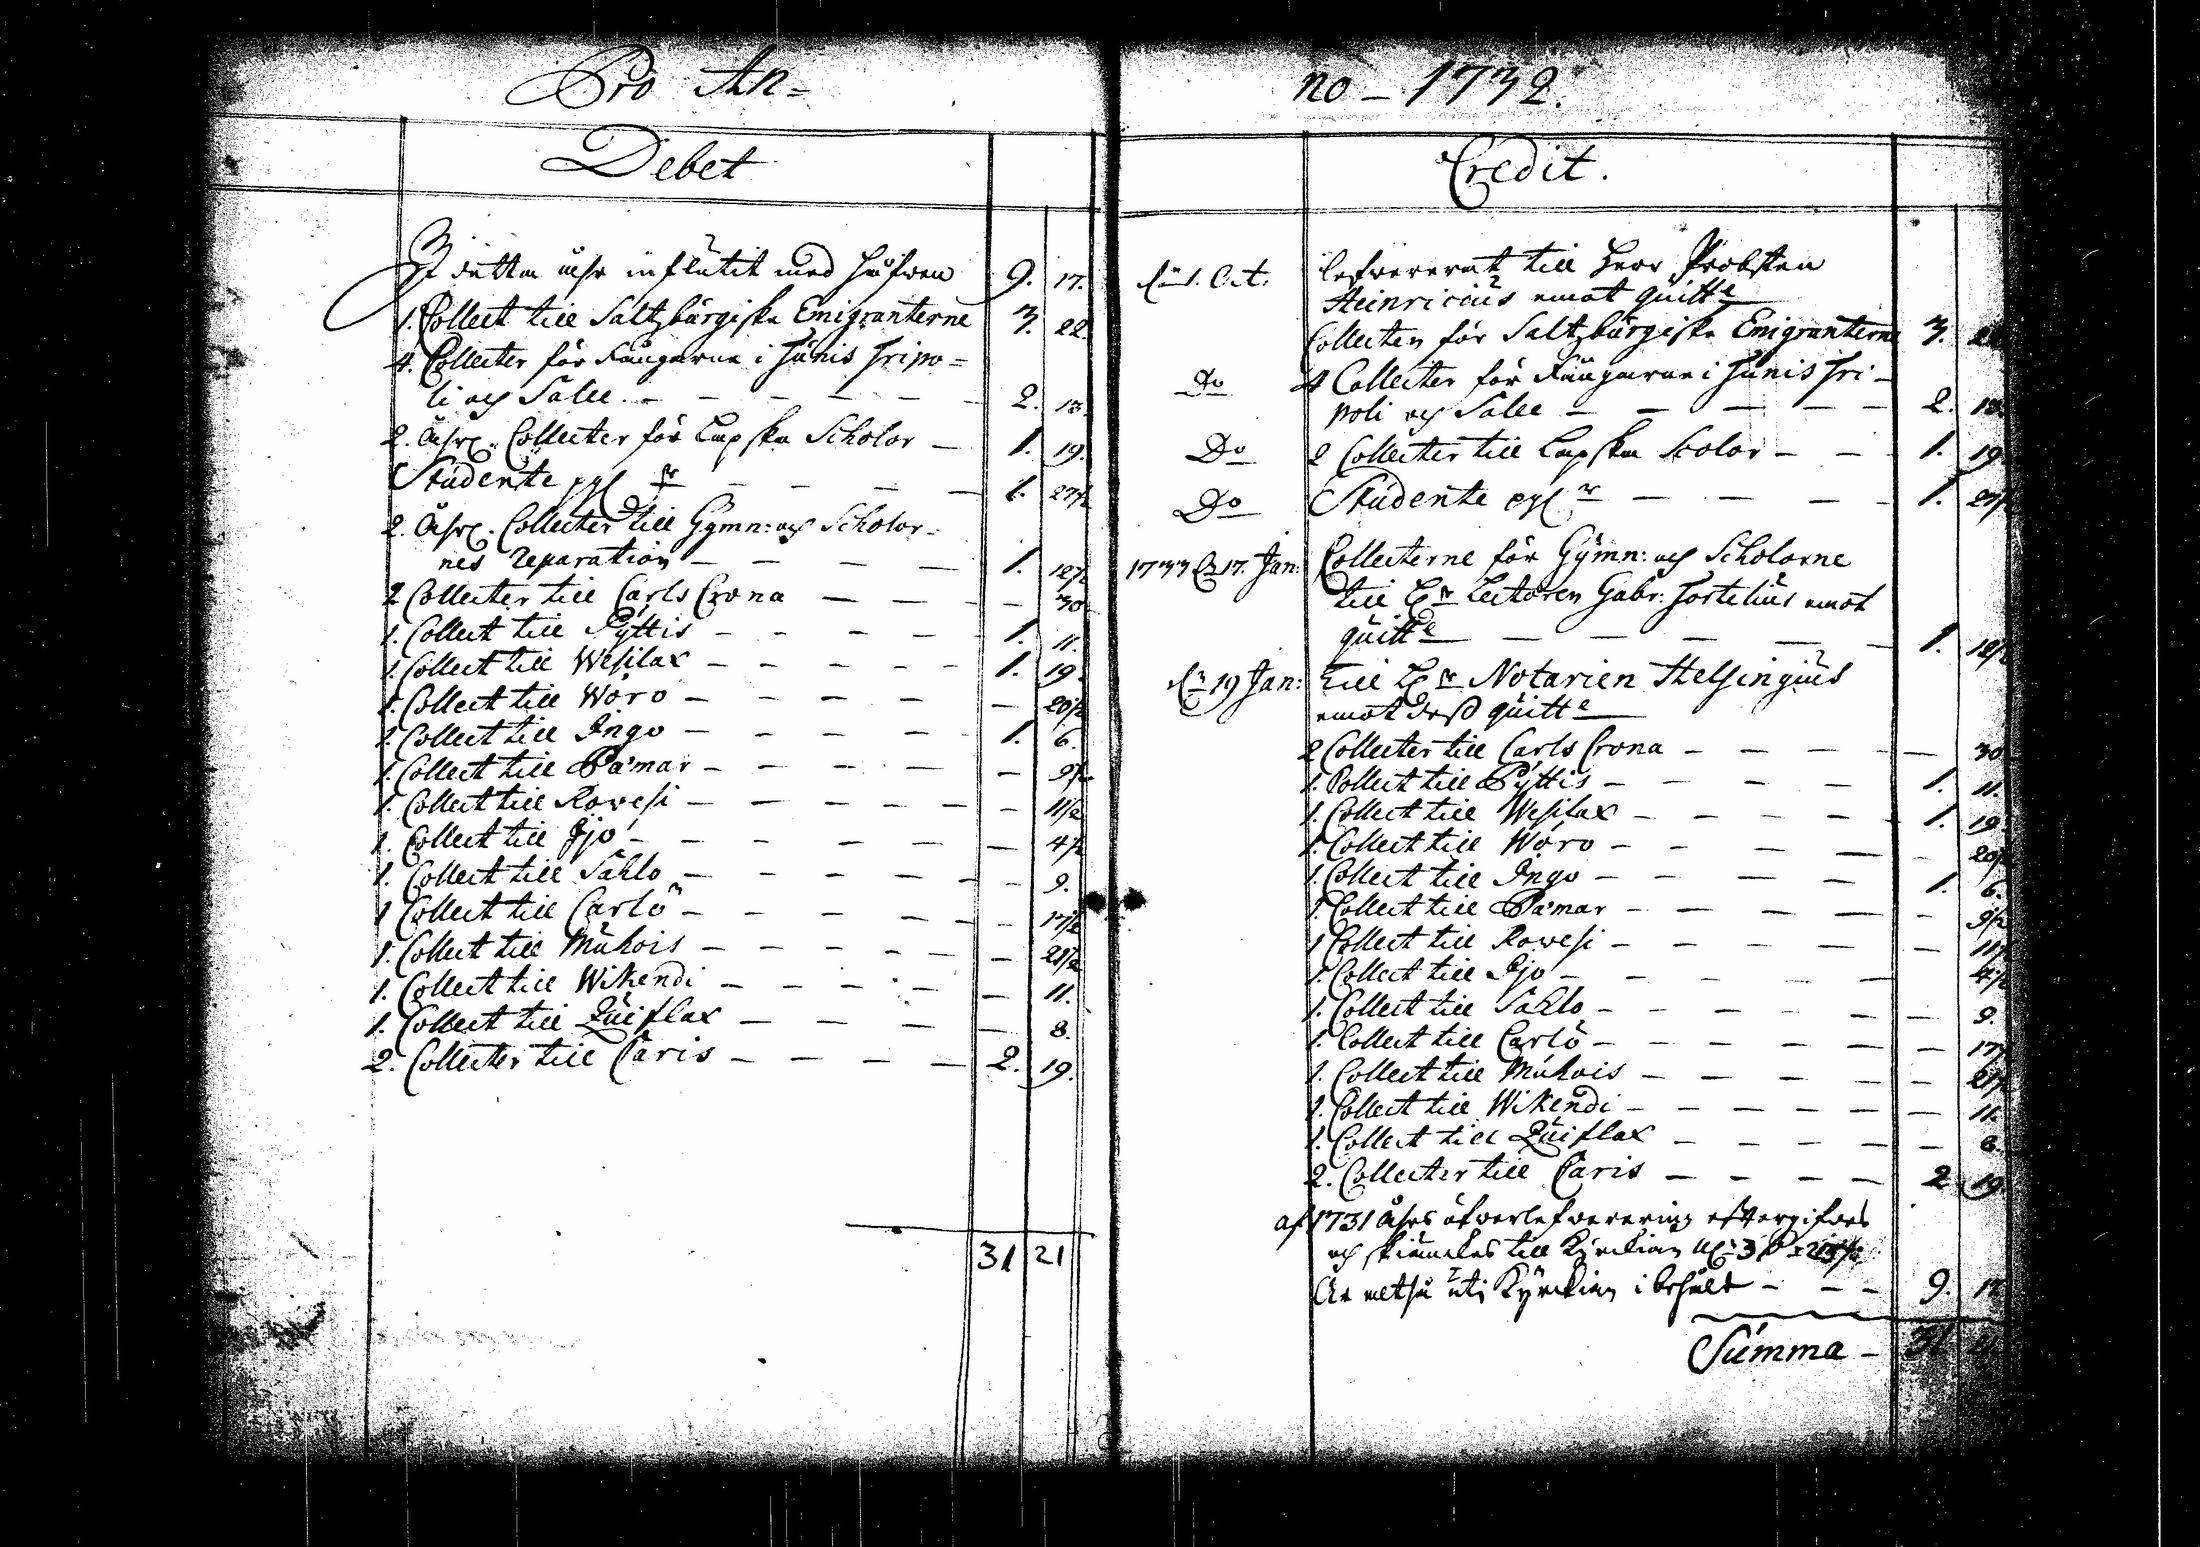 Pro An=
Debet
I detta åhr influtit med håfven 9. 17.
1. Collect till Saltzburgiska Emigranterne 3. 22.
4. Collecter för Fångarna i Tunis Tripo=
li och Salee. - - - - - 2. 13.
2. Åhrl. Collecter för Lapska Scholor - 1. 19.
Studente - - - - 1. 27½
2. Åhrl. Collecter till Gymn: och Scholor=
nes reparation - - - - 1. 12½
2 Collecter till Carls Crona - - - - 30
1. Collect till Pyttis - - - - 1. 11.
1. Collect till Wesilax - - - - - 1. 19.
1. Collect till Wöro - - - - - - 20½
1. Collect till Ingo - - - - - 1. 6.
1. Collect till Pämar - - - - - - 9½
1. Collect till Rovesi - - - - - - 11½
1. Collect till Ijo - - - - - - 4½
1. Collect till Sahlo - - - - - - 9.
1 Collect till Carlö - - - - - - 17½
1. Collect till Muhois - - - - - - 21½
1. Collect till Wikendi - - - - - - 11.
1. Collect till Quiflax - - - - - 8.
2. Collecter till Caris - - - - 2. 19.
31 21
no - 1732.
Credit.
lefvererat till Herr Probsten
Heinricius emot quitt
Collecten för Saltzburgiska Emigranterne 3.
Do 4 Collecter för Fångarna i Tunis Tri-
poli och Salee - - - - - 2. 13.
Do 2 Collecter till Lapska Scolor - - 1. 19.
Do Studente - - - - 1. 27½
1733 17. Jan: Collecterne för Gymn: och Scholorne
till Lectoren Gabr: Fortelius emot
quitt - - - - - 1. 12½
19 Jan: till Notarien Helsingius
emot dess quitt
2 Collecter till Carls Crona - - - - - 30
1. Collect till Pyttis - - - - 1. 11.
1. Collect till Wesilax - - - - - 1. 19.
1. Collect till Wöro - - - - - 20½
1. Collect till Ingo - - - - 1. 6.
1. Collect till Pämar - - - - - - 9½
1 Collect till Rovesi - - - - - - 11½
1. Collect till Ijo - - - - - 4½
1. Collect till Sahlo - - - - - - 9.
1. Collect till Carlö - - - - - - 17½
1. Collect till Muhois - - - - - - 21½
1. Collect till Wikendi - - - - - - 11.
1. Collect till Quiflax - - - - - 8.
2. Collecter till Caris - - - - 2 19
af 1731 åhrs öfverlefverering eftergifves
och skiänckes till Kyrckian
Är altså uti Kyrckian i behåll - - - 9. 17.
Summa - 31